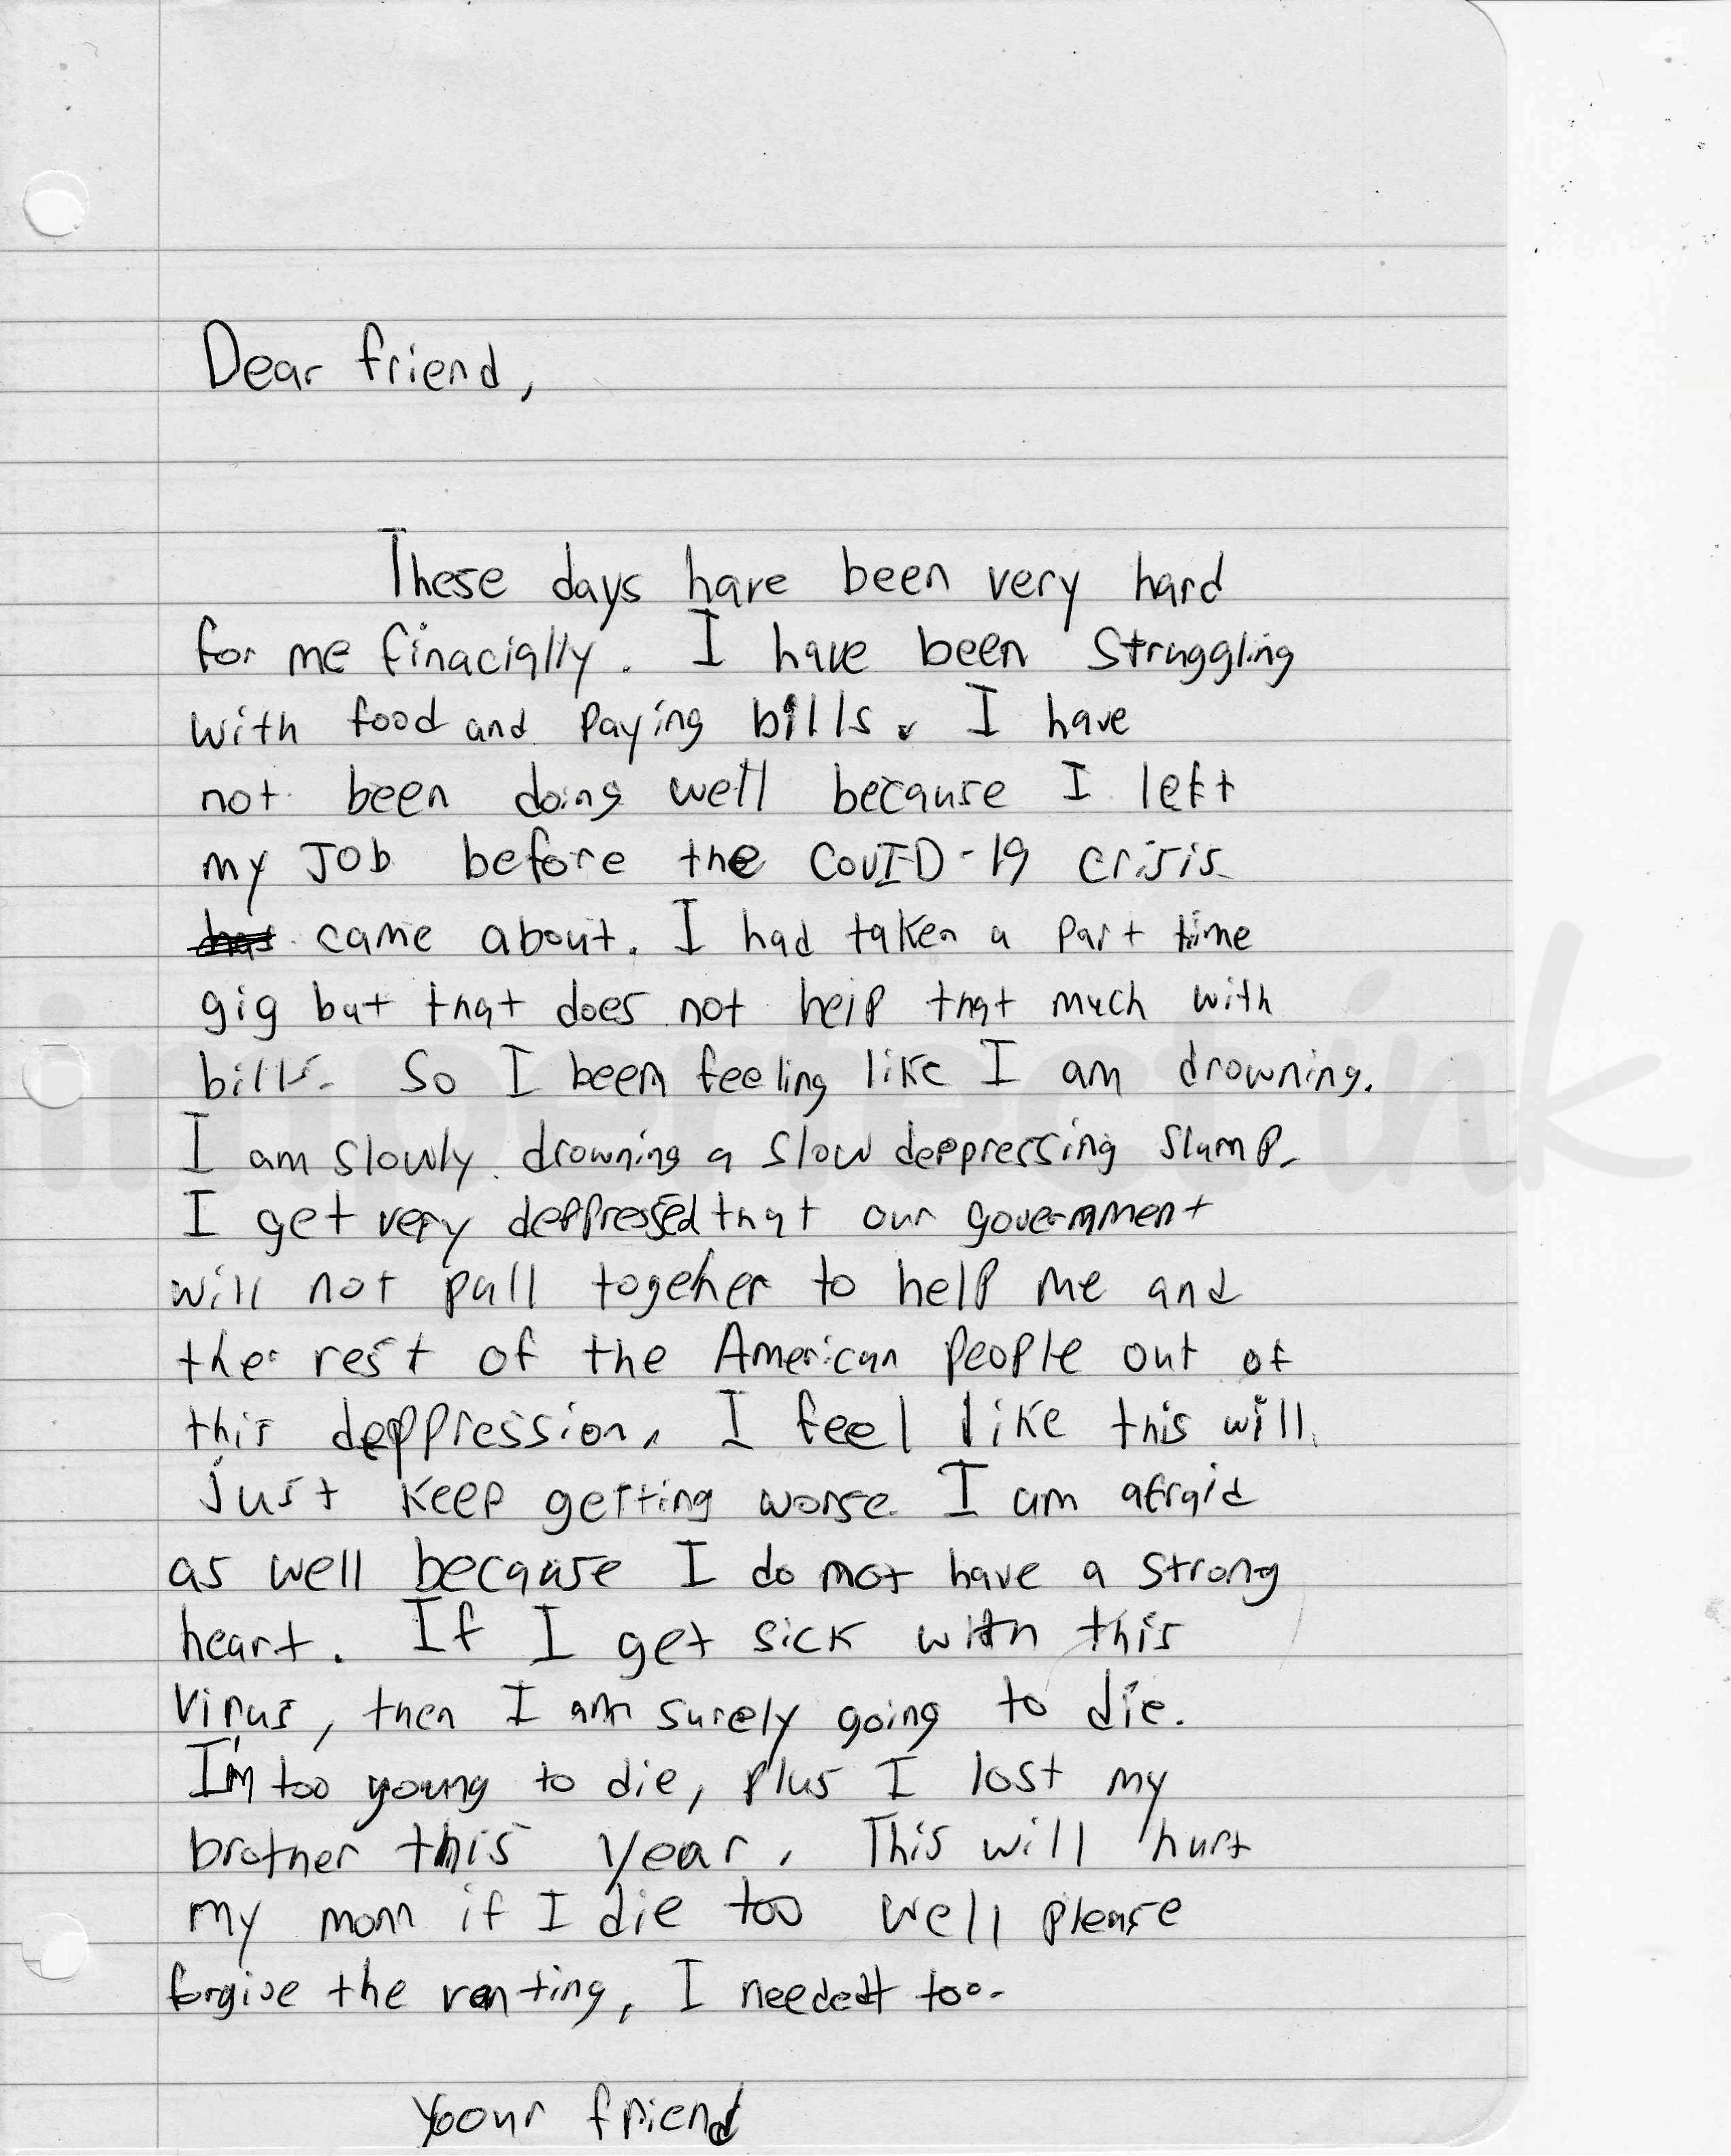 Dear friend,
These days have been very hard
for me finacially. I have been struggling
with food and paying bills. I have
not been doing well because I left
my JOB before the COVID-19 crisis
has came about. I had taken a part time
gig but that does not help that much with
bills. So I been feeling like I am drowning.
I am slowly drowning a slow deppressing slump.
I get very deppressed that our government
will not pull togeher to help me and
the rest of the American people out of
this deppression. I feel like this will
just keep getting worse. I am afraid
as well because I do not have a strong
heart. If I get sick with this
virus, then I am surely going to die.
I'm too young to die, plus I lost my
brother this year. This will hurt
my mom if I die too well please
forgive the venting, I needed too.
your friend
imperfect ink